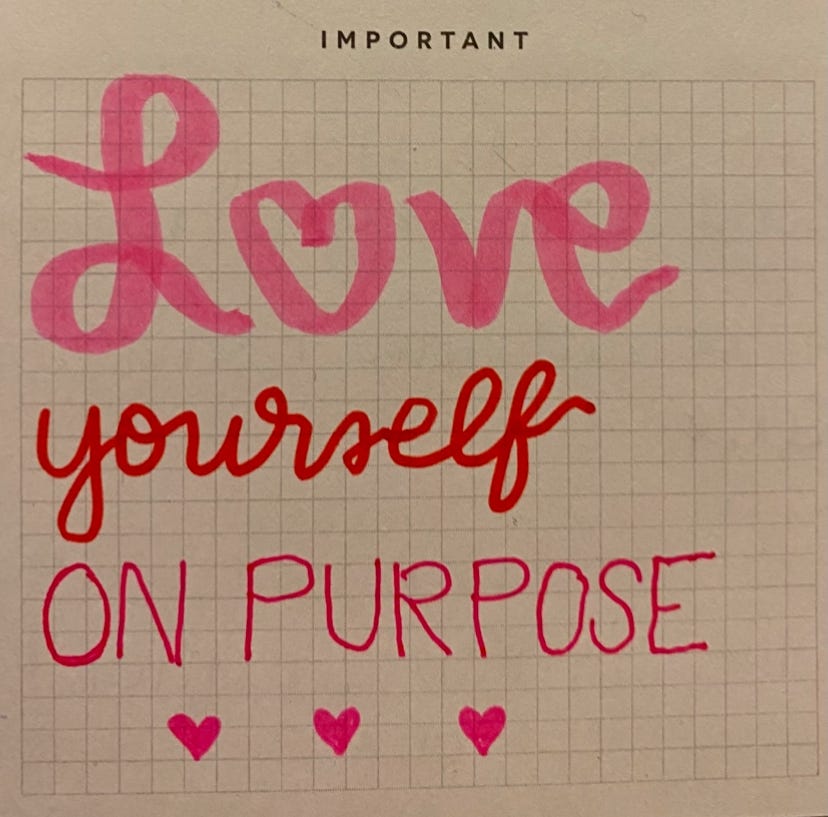 IMPORTANT
Love
yourself
ON PURPOSE